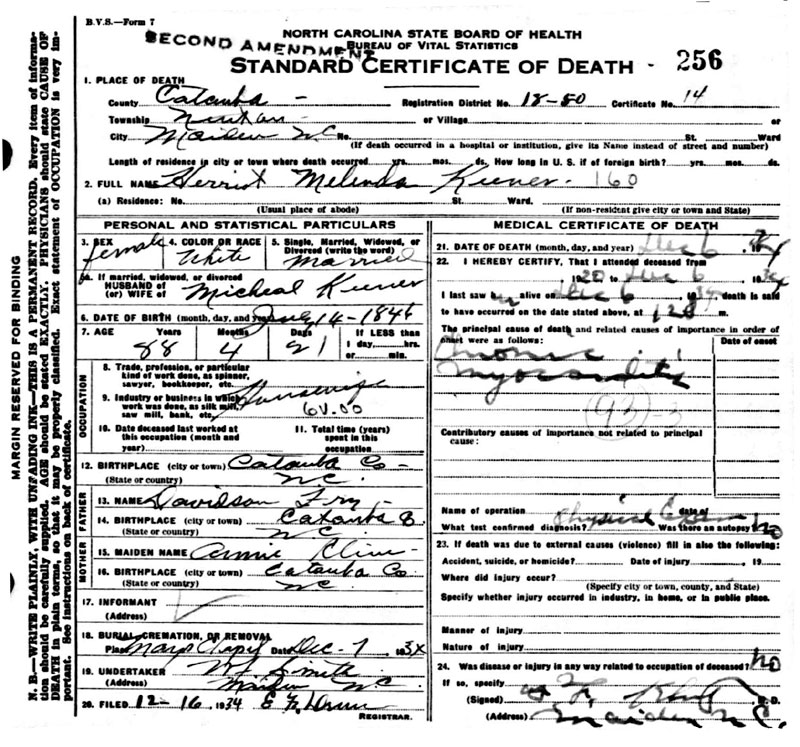 B.V.S.—Form 7
SECOND AMENDMENT
NORTH CAROLINA STATE BOARD OF HEALTH
BUREAU OF VITAL STATISTICS
STANDARD CERTIFICATE OF DEATH - 256
1. PLACE OF DEATH
County Catawba - Registration District No. 18-80 Certificate No. 14
Township Newton or Village or
City Maiden N.C. No. St. Ward
(If death occurred in a hospital or institution, give its Name instead of street and number)
Length of residence in city or town where death occurred yrs. mos. ds. How long in U. S. if of foreign birth? yrs. mos. ds.
2. FULL NAME Herriot Melinda Keener - 160
(a) Residence: No. St. Ward.
(Usual place of abode) (If non-resident give city or town and State)
PERSONAL AND STATISTICAL PARTICULARS
3. SEX female 4. COLOR OR RACE White 5. Single, Married, Widowed, or Divorced (write the word) Married
5a. If married, widowed, or divorced
HUSBAND OF
(or) WIFE OF Micheal Keener
6. DATE OF BIRTH (month, day, and year) 14-1846
7. AGE Years Months Days If LESS than
88 4 21 1 day hrs.
or min.
OCCUPATION
8. Trade, profession, or particular kind of work done, as spinner, sawyer, bookkeeper, etc. Housewife
9. Industry or business in which work was done, as silk mill, saw mill, bank, etc.
10. Date deceased last worked at this occupation (month and year)
11. Total time (years) spent in this occupation
12. BIRTHPLACE (city or town) Catawba Co -
(State or country) N.C.
FATHER
13. NAME Davidson Fry -
14. BIRTHPLACE (city or town) Catawba Co.
(State or country) N.C.
MOTHER
15. MAIDEN NAME Annie Cline -
16. BIRTHPLACE (city or town) Catawba Co
(State or country) N.C.
17. INFORMANT
(Address)
18. BURIAL, CREMATION, OR REMOVAL
Place Date Dec - 7 193
19. UNDERTAKER Smith
(Address) Maiden N.C.
20. FILED 12-16 1934
REGISTRAR.
MEDICAL CERTIFICATE OF DEATH
21. DATE OF DEATH (month, day, and year) Dec 6 1934
22. I HEREBY CERTIFY, That I attended deceased from
, 1920 to Dec 6, 1934
I last saw h alive on Dec 6 1934. death is said
to have occurred on the date stated above, at m.
The principal cause of death and related causes of importance in order of onset were as follows: Date of onset
Chronic
Myocarditis
(93)
Contributory causes of importance not related to principal cause:
Name of operation date of
What test confirmed diagnosis? Physical Exam Was there an autopsy? No
23. If death was due to external causes (violence) fill in also the following:
Accident, suicide, or homicide? Date of injury , 19
Where did injury occur?
(Specify city or town, county, and State)
Specify whether injury occurred in industry, in home, or in public place.
Manner of injury
Nature of injury
24. Was disease or injury in any way related to occupation of deceased? No
If so, specify
(Signed) M.D.
(Address) Maiden N.C.
MARGIN RESERVED FOR BINDING
N. B.—WRITE PLAINLY, WITH UNFADING INK—THIS IS A PERMANENT RECORD. Every item of information should be carefully supplied. AGE should be stated EXACTLY. PHYSICIANS should state CAUSE OF DEATH in plain terms, so that it may be properly classified. Exact statement of OCCUPATION is very important. See instructions on back of certificate.